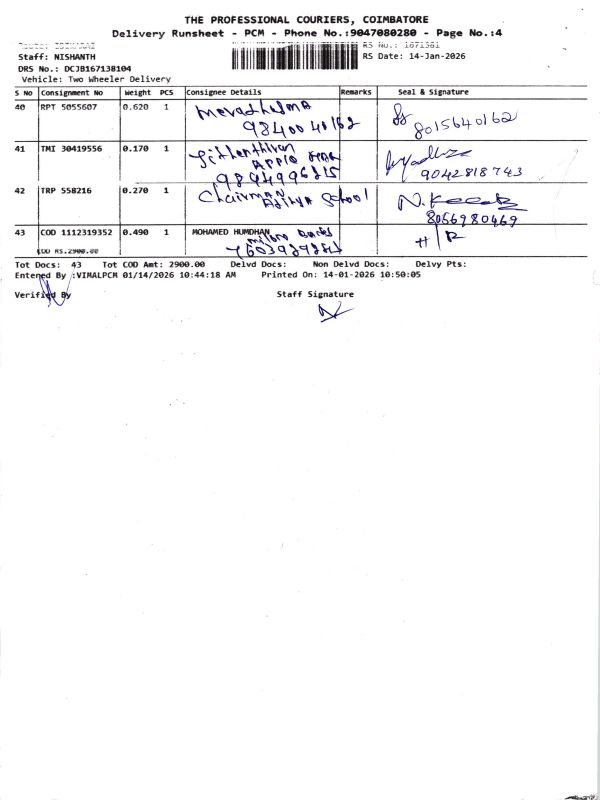 THE PROFESSIONAL COURIERS, COIMBATORE
Delivery Runsheet - PCM - Phone No.:9047080280 - Page No.:4
RS No.: 1671381
Staff: NISHANTH RS Date: 14-Jan-2026
DRS No.: DCJB167138104
Vehicle: Two Wheeler Delivery
S No Consignment No Weight PCS Consignee Details Remarks Seal & Signature
40 RPT 5055607 0.620 1
9840040162 8015640162
41 TMI 30419556 0.170 1
Apple
9894996215 9042818743
42 TRP 558216 0.270 1 Chairman
Aditya School
8056980469
43 COD 1112319352 0.490 1 MOHAMED HUMDHAN
COD RS.2900.00 H/R
Tot Docs: 43 Tot COD Amt: 2900.00 Delvd Docs: Non Delvd Docs: Delvy Pts:
Entered By :VIMALPCM 01/14/2026 10:44:18 AM Printed On: 14-01-2026 10:50:05
Verified By Staff Signature